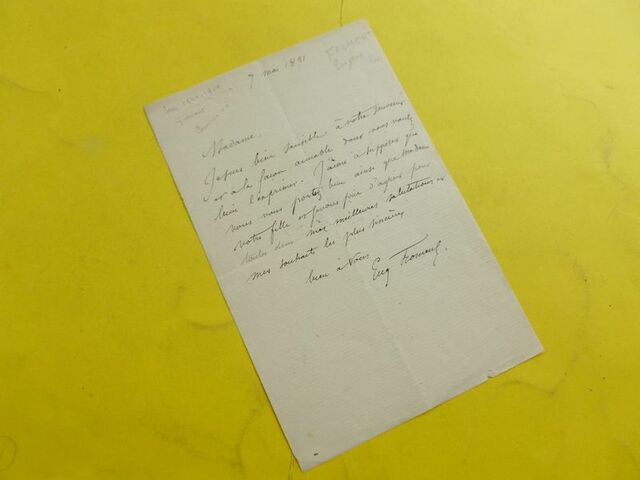 FROMENT
Eugène
7 mai 1891
Madame,
Je suis bien sensible à votre souvenir
et à la façon aimable dont vous voulez
bien l'exprimer. J'aime à supposer que
vous vous portez bien ainsi que Madame
votre fille et je vous prie d'agréer pour
toutes deux mes meilleures salutations et
mes souhaits les plus sincères
bien à vous
Eug Froment.